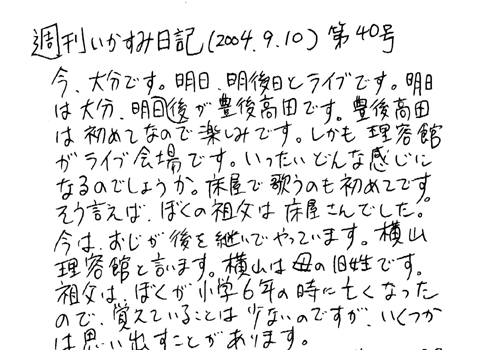 週刊いかすみ日記(2004.9.10)第40号
今、大分です。明日、明後日とライブです。明日
は大分、明後が豊後高田です。豊後高田
は初めてなので楽しみです。しかも理容館
がライブ会場です。いったいどんな感じに
なるのでしょうか。床屋で歌うのも初めてです。
そう言えば、ぼくの祖父は床屋さんでした。
今は、おじが後を継いでやっています。横山
理容館と言います。横山は母の旧姓です。
祖父は、ぼくが小学6年の時に亡くなった
ので、覚えていることは少ないのですが、いくつか
は思い出すことがあります。